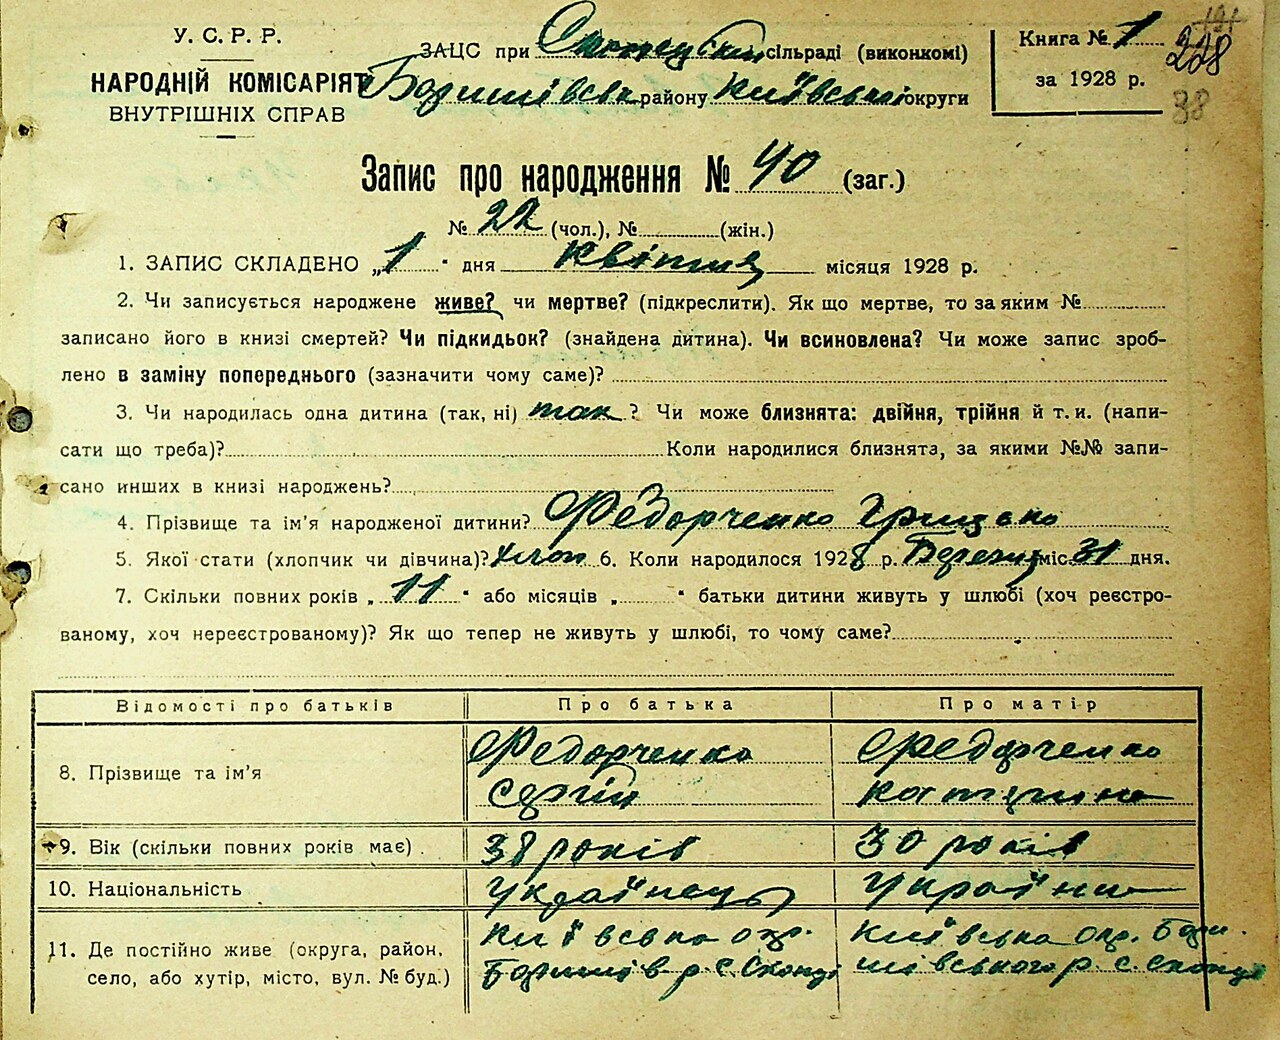 У. С. Р. Р.
НАРОДНІЙ КОМІСАРІЯТ
ВНУТРІШНІХ СПРАВ
ЗАЦС при сільраді (виконкомі)
району Київської округи
Книга № 1
за 1928 р.
228
38
Запис про народження № 40 (заг.)
№ 22 (чол.), № (жін.)
1. ЗАПИС СКЛАДЕНО „1" дня Квітня місяця 1928 р.
2. Чи записується народжене живе? чи мертве? (підкреслити). Як що мертве, то за яким №
записано його в книзі смертей? Чи підкидьок? (знайдена дитина). Чи всиновлена? Чи може запис зроб-
лено в заміну попереднього (зазначити чому саме)?
3. Чи народилась одна дитина (так, ні) так ? Чи може близнята: двійня, трійня й т. и. (напи-
сати що треба)? Коли народилися близнята, за якими №№ запи-
сано инших в книзі народжень?
4. Прізвище та ім'я народженої дитини? Федорченко Грицько
5. Якої стати (хлопчик чи дівчина)? хлоп 6. Коли народилося 1928 р. Березня міс. 31 дня.
7. Скільки повних років „ 11 " або місяців „ " батьки дитини живуть у шлюбі (хоч реєстро-
ваному, хоч нереєстрованому)? Як що тепер не живуть у шлюбі, то чому саме?
Відомості про батьків Про батька Про матір
8. Прізвище та ім'я Федорченко Сергій Федорченко Катерина
9. Вік (скільки повних років має) 38 років 30 років
10. Національність Українець Українка
11. Де постійно живе (округа, район, Київська окр. Київська окр. Бори-
село, або хутір, місто, вул. № буд.) р. с. шівського р. с.